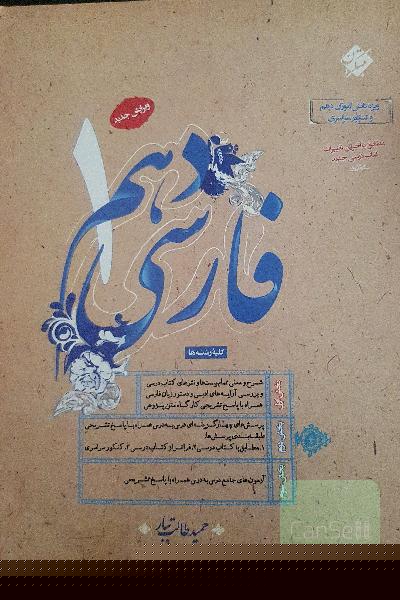 مبتکران
ویژه دانش آموزان دهم
و کنکور سراسری
مطابق با آخرین تغییرات
کتاب درسی جدید
ویرایش جدید
فارسی دهم
۱
کلیه رشته ها
بخش اول
شرح و معنی تمام بیت ها و نثرهای کتاب درسی
و بررسی آرایه های ادبی و دستور زبان فارسی
همراه با پاسخ تشریحی کارگاه متن پژوهی
بخش دوم
پرسش های چهارگزینه ای درس به درس همراه با پاسخ تشریحی
طبقه بندی پرسش ها:
۱. مطابق با کتاب درسی ۲. فراتر از کتاب درسی ۳. کنکور سراسری
بخش سوم
آزمون های جامع درس به درس همراه با پاسخ تشریحی
حمید طالب تبار
CanSell